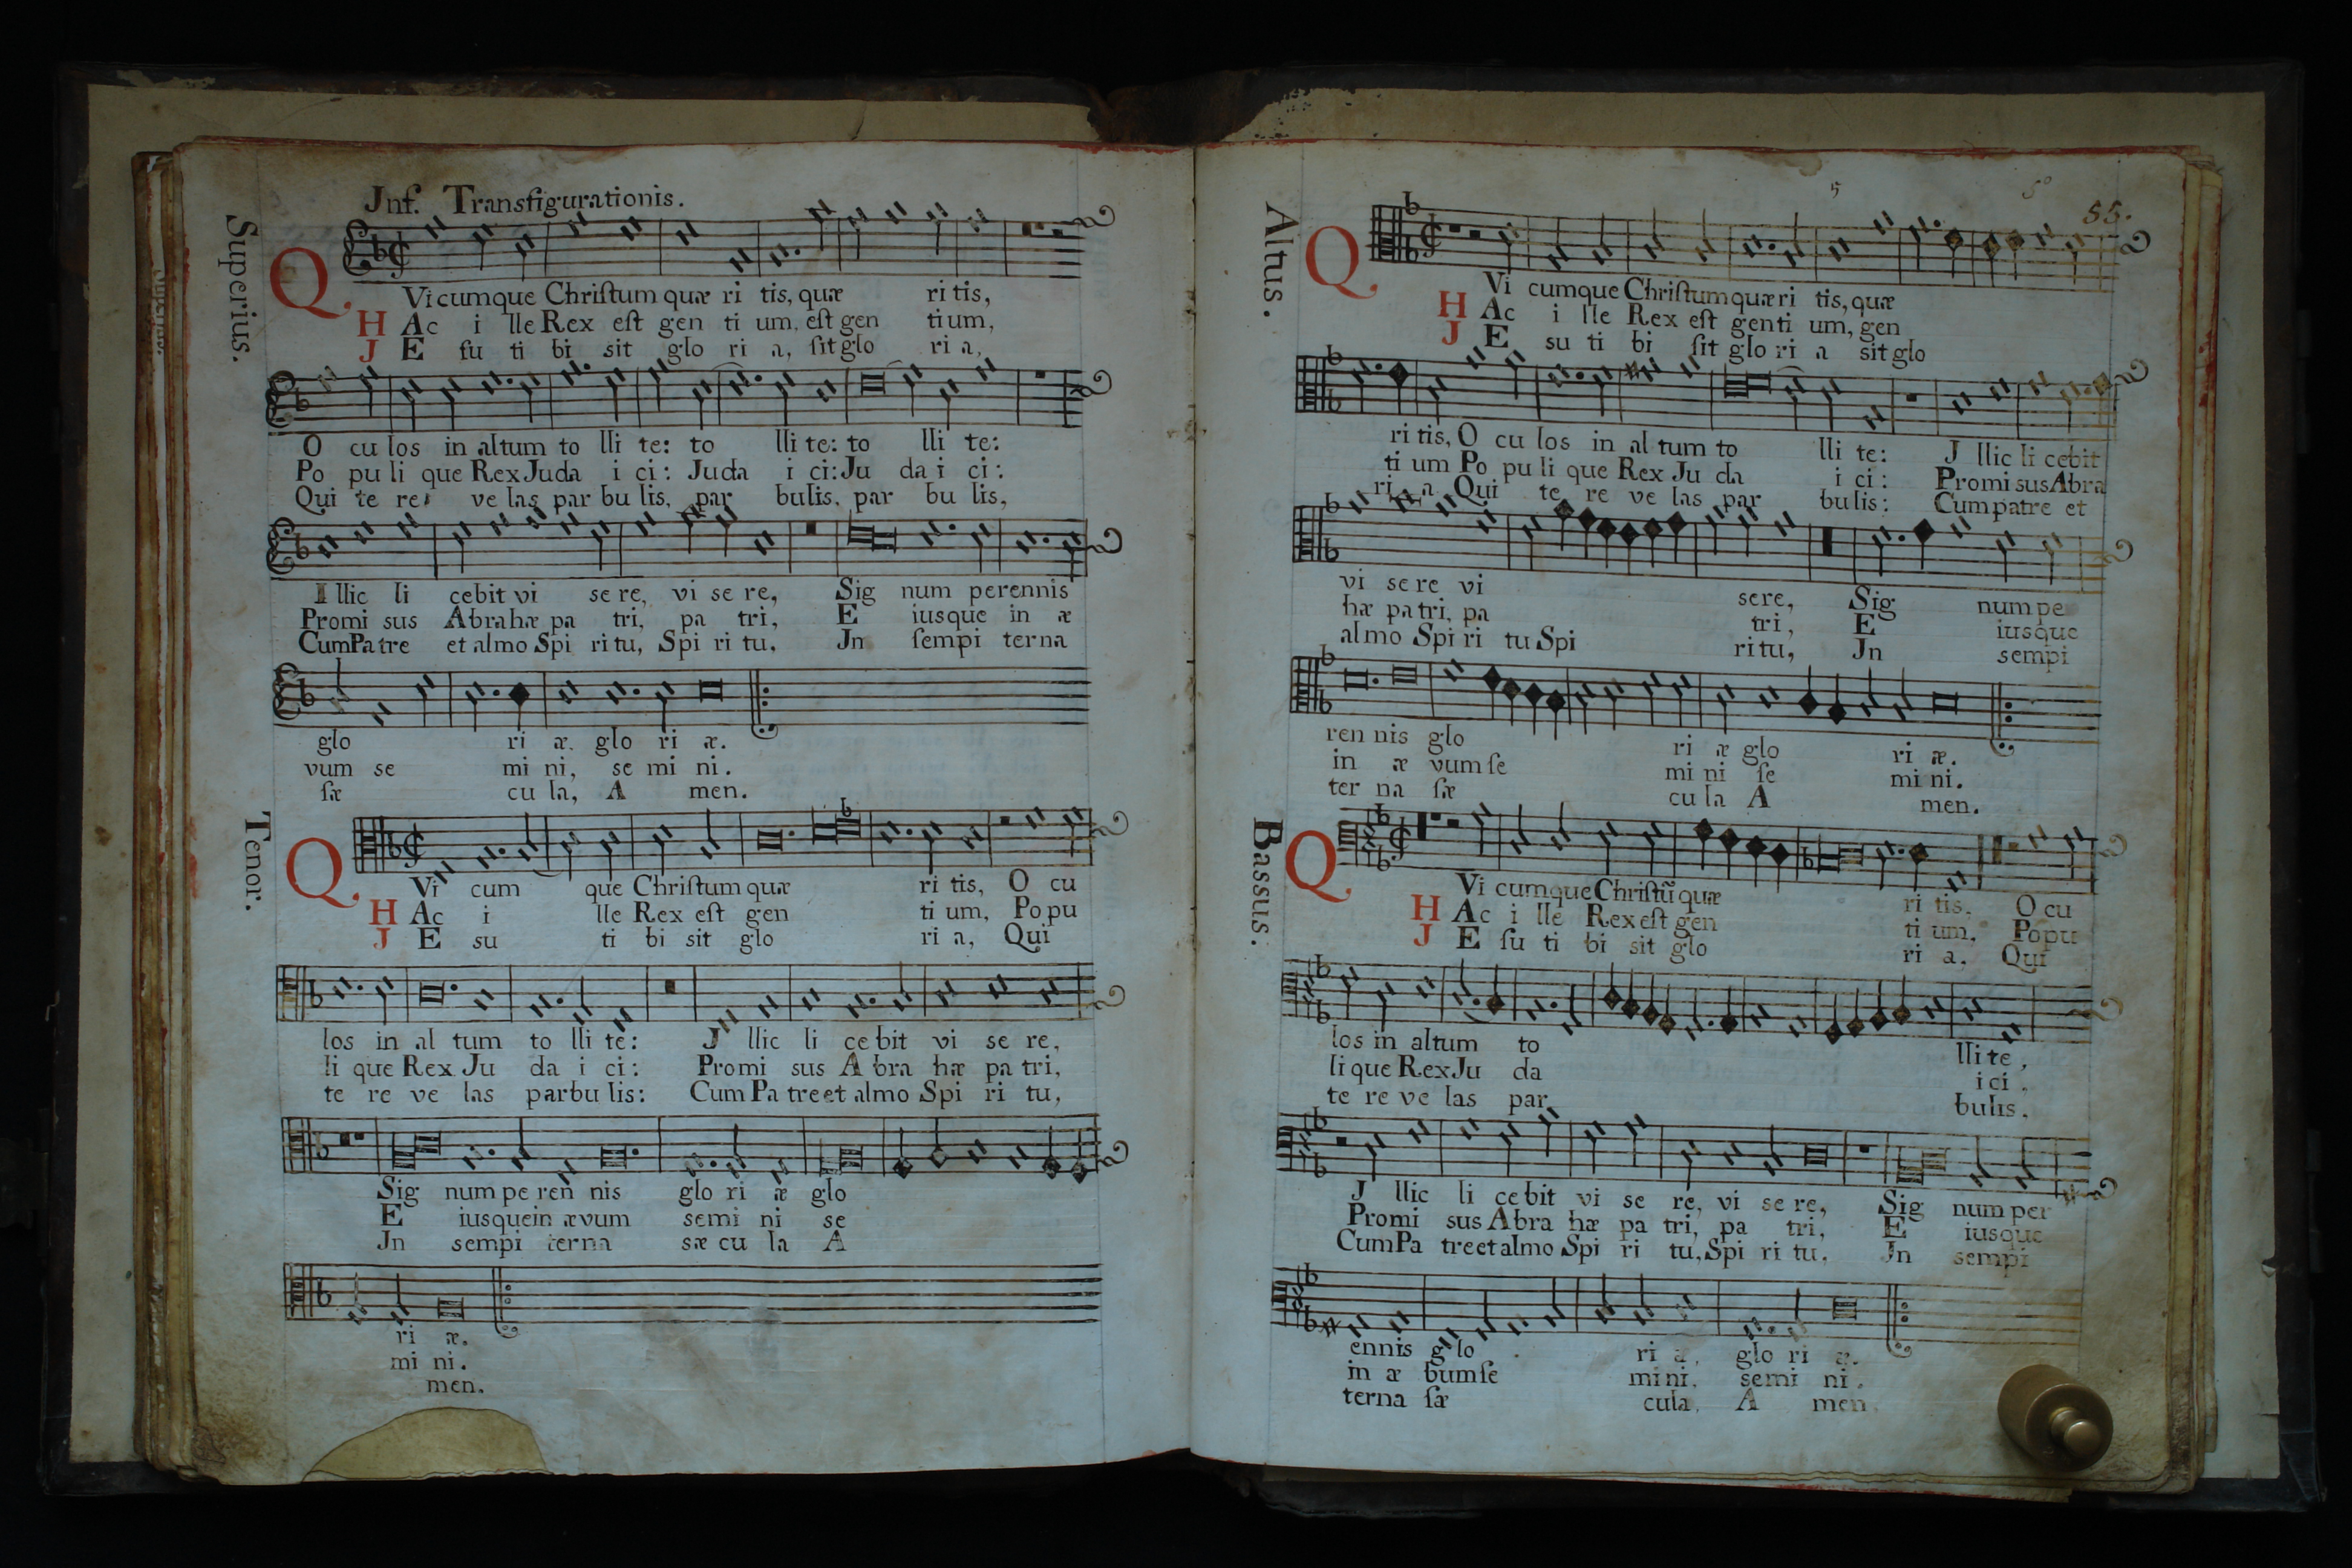 Jnf. Transfigurationis.
Superius.
Q Vi cumque Chriſtum quæ ri tis, quæ ri tis,
H Ac i lle Rex eſt gen ti um, eſt gen ti um,
J E ſu ti bi sit glo ri a, ſit glo ri a,
O cu los in altum to lli te: to lli te: to lli te:
Po pu li que Rex Juda i ci: Juda i ci: Ju da i ci:
Qui te re ve las par bu lis, par bulis, par bu lis,
Illic li cebit vi se re, vi se re, Sig num perennis
Promi sus Abrahæ pa tri, pa tri, E iusque in æ
Cum Patre et almo Spi ri tu, Spi ri tu, Jn ſempi terna
glo ri æ. glo ri æ.
vum se mi ni, se mi ni.
ſæ cu la, A men.
Tenor.
Q Vi cum que Chriſtum quæ ri tis, O cu
H Ac i lle Rex eſt gen ti um, Po pu
J E su ti bi sit glo ri a, Qui
los in al tum to lli te: J llic li ce bit vi se re,
li que Rex Ju da i ci: Promi sus A bra hæ pa tri,
te re ve las parbu lis: Cum Pa tre et almo Spi ri tu,
Sig num pe ren nis glo ri æ glo
E iusque in ævum semi ni se
Jn sempi terna sæ cu la A
ri æ.
mi ni.
men.
55.
Altus.
Q Vi cumque Chriſtum quæ ri tis, quæ
H Ac i lle Rex eſt gen ti um, gen
J E su ti bi ſit glo ri a sit glo
ri tis, O cu los in al tum to lli te: J llic li cebit
ti um Po pu li que Rex Ju da i ci: Promi sus Abra
ri a Qui te re ve las par bu lis: Cum patre et
vi se re vi sere, Sig num pe
hæ pa tri, pa tri, E iusque
almo Spi ri tu Spi ri tu, Jn sempi
ren nis glo ri æ glo ri æ.
in æ vum ſe mi ni ſe mi ni.
ter na ſæ cu la A men.
Bassus.
Q Vi cumque Chriſtũ quæ ri tis, O cu
H Ac i lle Rex eſt gen ti um, Po pu
J E ſu ti bi sit glo ri a, Qui
los in altum to lli te,
li que Rex Ju da i ci.
te re ve las par bulis.
J llic li ce bit vi se re, vi se re, Sig num per
Promi sus Abra hæ pa tri, pa tri, E iusque
Cum Pa tre et almo Spi ri tu, Spi ri tu, Jn sempi
ennis glo ri æ, glo ri æ.
in æ bum ſe mi ni, semi ni.
terna ſæ cula, A men.